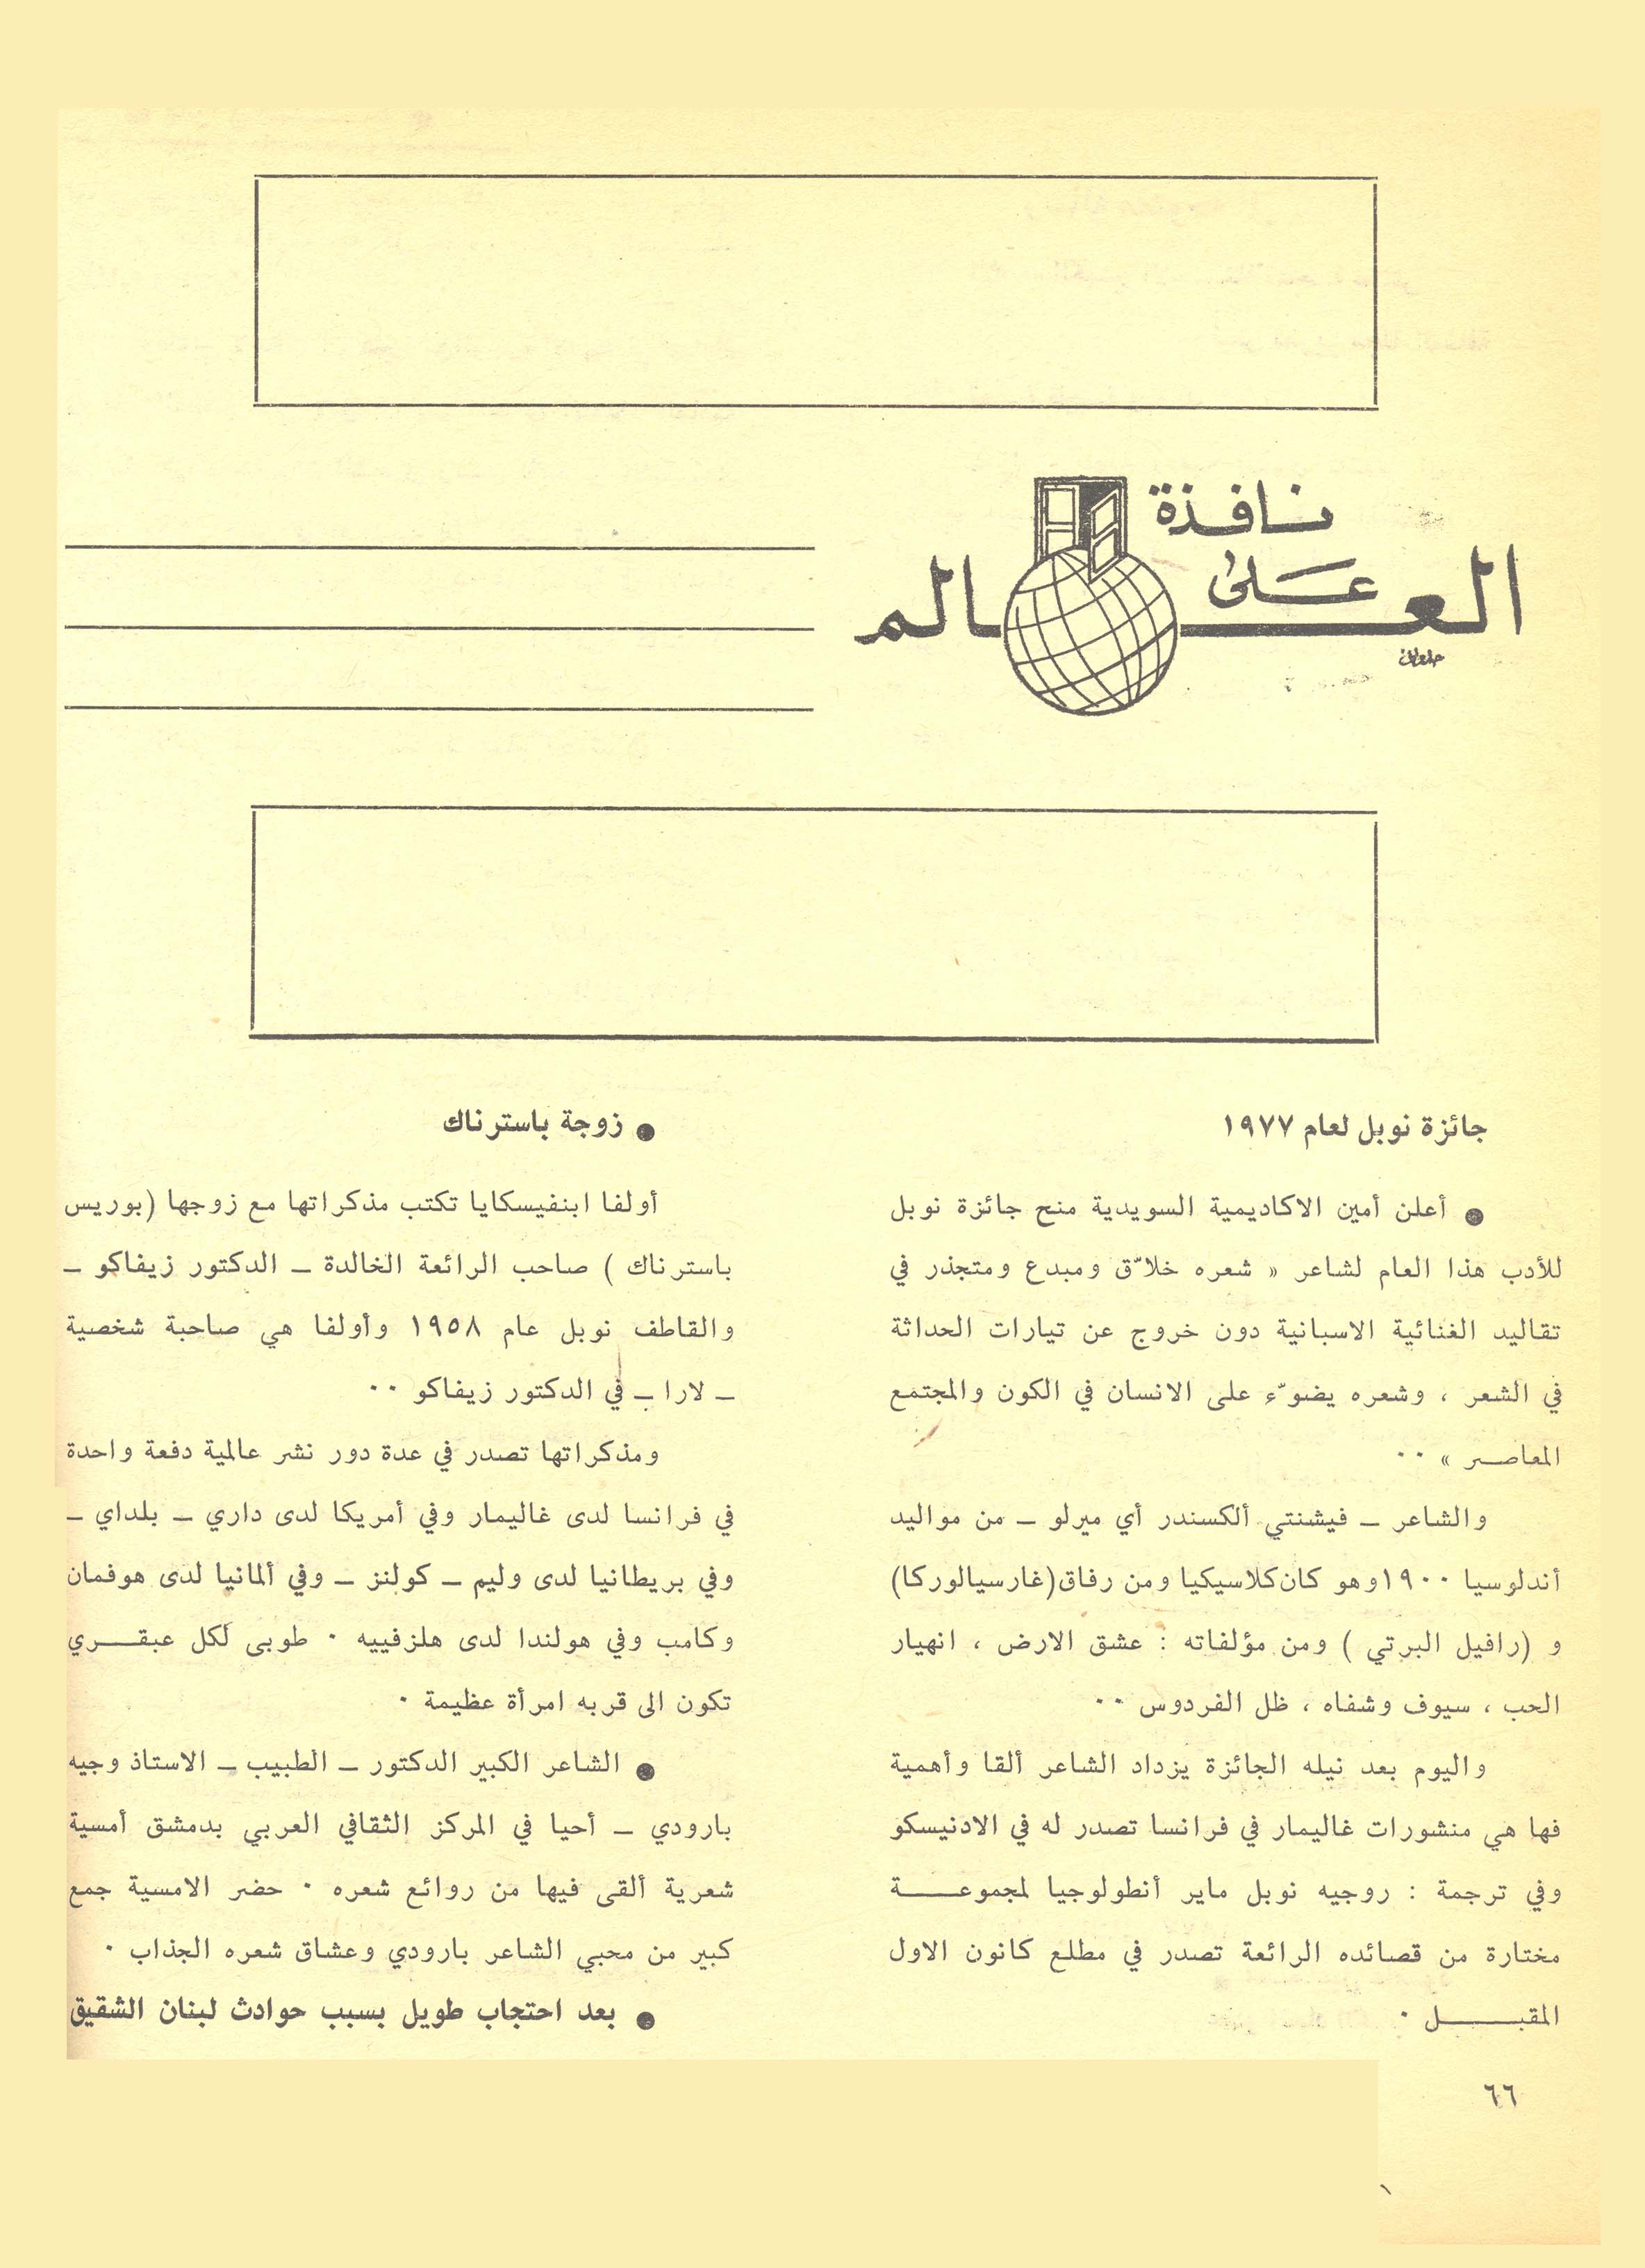 نافذة
على
العالم
جائزة نوبل لعام ١٩٧٧
● أعلن أمين الاكاديمية السويدية منح جائزة نوبل
للأدب هذا العام لشاعر « شعره خلاّق ومبدع ومتجذر في
تقاليد الغنائية الاسبانية دون خروج عن تيارات الحداثة
في الشعر ، وشعره يضوّء على الانسان في الكون والمجتمع
المعاصر » ٠٠
والشاعر ــ فيشنتي ألكسندر أي ميرلو ــ من مواليد
أندلوسيا ١٩٠٠ وهو كان كلاسيكيا ومن رفاق (غارسيالوركا)
و (رافيل البرتي ) ومن مؤلفاته : عشق الارض ، انهيار
الحب ، سيوف وشفاه ، ظل الفردوس ٠٠
واليوم بعد نيله الجائزة يزداد الشاعر ألقا وأهمية
فها هي منشورات غاليمار في فرانسا تصدر له في الادنيسكو
وفي ترجمة : روجيه نوبل ماير أنطولوجيا لمجموعة
مختارة من قصائده الرائعة تصدر في مطلع كانون الاول
المقبل ٠
● زوجة باسترناك
أولفا ابنفيسكايا تكتب مذكراتها مع زوجها (بوريس
باسترناك ) صاحب الرائعة الخالدة ــ الدكتور زيفاكو ــ
والقاطف نوبل عام ١٩٥٨ وأولفا هي صاحبة شخصية
ــ لارا ــ في الدكتور زيفاكو ٠٠
ومذكراتها تصدر في عدة دور نشر عالمية دفعة واحدة
في فرانسا لدى غاليمار وفي أمريكا لدى داري ــ بلداي ــ
وفي بريطانيا لدى وليم ــ كولنز ــ وفي ألمانيا لدى هوفمان
وكامب وفي هولندا لدى هلزفييه ٠ طوبى لكل عبقري
تكون الى قربه امرأة عظيمة ٠
● الشاعر الكبير الدكتور ــ الطبيب ــ الاستاذ وجيه
بارودي ــ أحيا في المركز الثقافي العربي بدمشق أمسية
شعرية ألقى فيها من روائع شعره ٠ حضر الامسية جمع
كبير من محبي الشاعر بارودي وعشاق شعره الجذاب ٠
● بعد احتجاب طويل بسبب حوادث لبنان الشقيق
٦٦